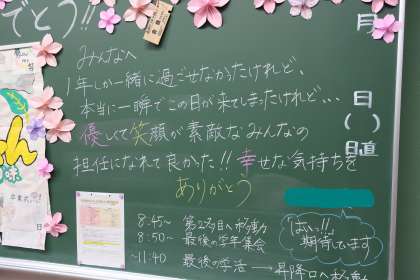 でとう!!
月
みんなへ
1年しか一緒に過ごせなかったけれど、
本当に一瞬でこの日が来てしまったけれど、、、
日
優しくて笑顔が素敵なみんなの
( )
日直
担任になれて良かった!!幸せな気持ちを
ありがとう
8:45〜 第2多目へ移動
8:50〜 最後の学年集会
〜11:40 最後の学活 → 昇降口へ移動
「はいっ!!」
期待しています